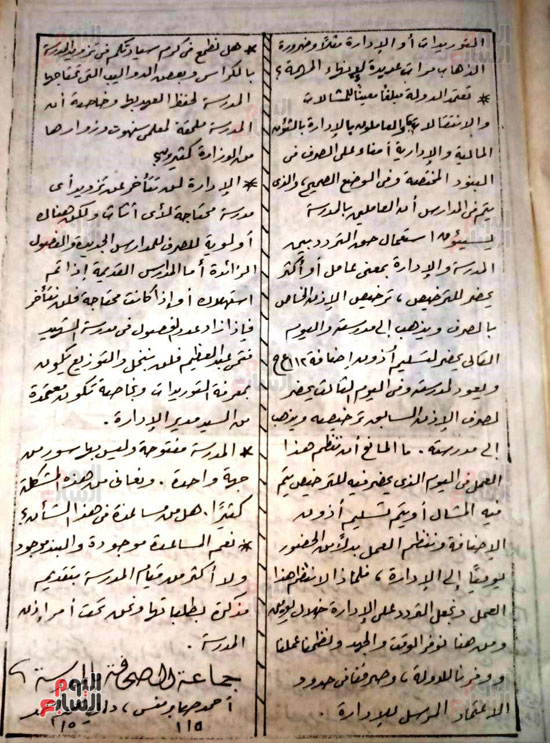 التوريدات أو الإدارة مثلاً وضرورة
الذهاب مرات عديدة لإنهاء المهمة؟
* تعتمد الدولة مبلغاً معيناً للمشالات
والانتقالات والعاملون بالإدارة بالشئون
المالية والإدارية أمناء على الصرف فى
البنود المختصة وفى الوضع الصحيح والذى
يتم فى المدارس أن العاملين بالمدرسة
يسيئون استعمال حق التردد بين
المدرسة والإدارة بمعنى عامل أو أكثر
يحضر للترخيص، ترخيص الإذن الخاص
بالصرف ويذهب إلى مدرسته واليوم
التالى يحضر لتسليم أذون إضافة ١١٢ ع ح
ويعود لمدرسته وفى اليوم الثالث يحضر
لصرف الإذن السابق ترخيصه ويذهب
إلى مدرسته. ما المانع أن ننظم هذا
العمل فى اليوم الذى يحضر فيه للترخيص يتم
فيه المشال أو يتم تسليم أذون
الإضافة وننتظم العمل بدلاً من الحضور
يومياً إلى الإدارة، فلماذا لا ننظم هذا
العمل ونجعل التردد على الإدارة خلال يومين
ومن هنا نوفر الوقت والجهد ونظمنا عملنا
ووفرنا للدولة، وصرفنا فى حدود
الاعتماد المرسل للإدارة.
* هل نطمع فى كرم سيادتكم فى تزويد المدرسة
بالكراسى وبعض الدواليب التى تحتاجها
المدرسة لحفظ العهد بها وخاصة أن
المدرسة ملحقة لمعلمى سنهوت وزوارها
من الوزارة كثيرون؟
* الإدارة لن تتأخر عن تزويد أى
مدرسة محتاجة لأى أثاث ولكن هناك
أولوية للصرف للمدارس الجديدة والفصول
الزائدة أما المدارس القديمة إذا تم
استهلاك أو إذا كانت محتاجة فلن نتأخر
فإذا زاد عدد الفصول فى مدرسة الشهيد
فتحى عبد العظيم فلن نبخل والتوزيع يكون
بمعرفة التوريدات وبخاصة تكون معتمدة
من السيد مدير الإدارة.
* المدرسة مفتوحة وليس بها سور من
جهة واحدة. ونعانى من هذه المشكلة
كثيراً. هل من مساعدة فى هذا الشأن؟
* نعم المساعدة موجودة والبند موجود
ولا أكثر من قيام المدرسة بتقديم
مذكرة بطلباتها ونحن تحت أمر إذن
المدرسة.
جماعة الصحافة بالمدرسة
أحمد صابر
١/٥ ١/٥
اليوم السابع